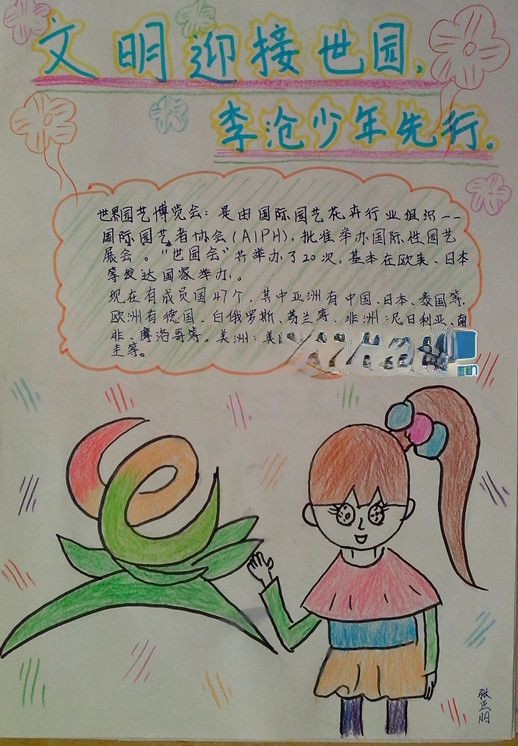 文明迎接世园.
李沧少年先行.
世界园艺博览会：是由国际园艺花卉行业组织--
国际园艺者协会(AIPH),批准举办国际性园艺
展会。"世园会"共举办了20次,基本在欧美、日本
等发达国家举办。
现在有成员国47个,其中亚洲有中国、日本、泰国等,
欧洲有德国、白俄罗斯、荷兰等,非洲:尼日利亚、南
非、摩洛哥等。美洲:美
圭等。
张正明